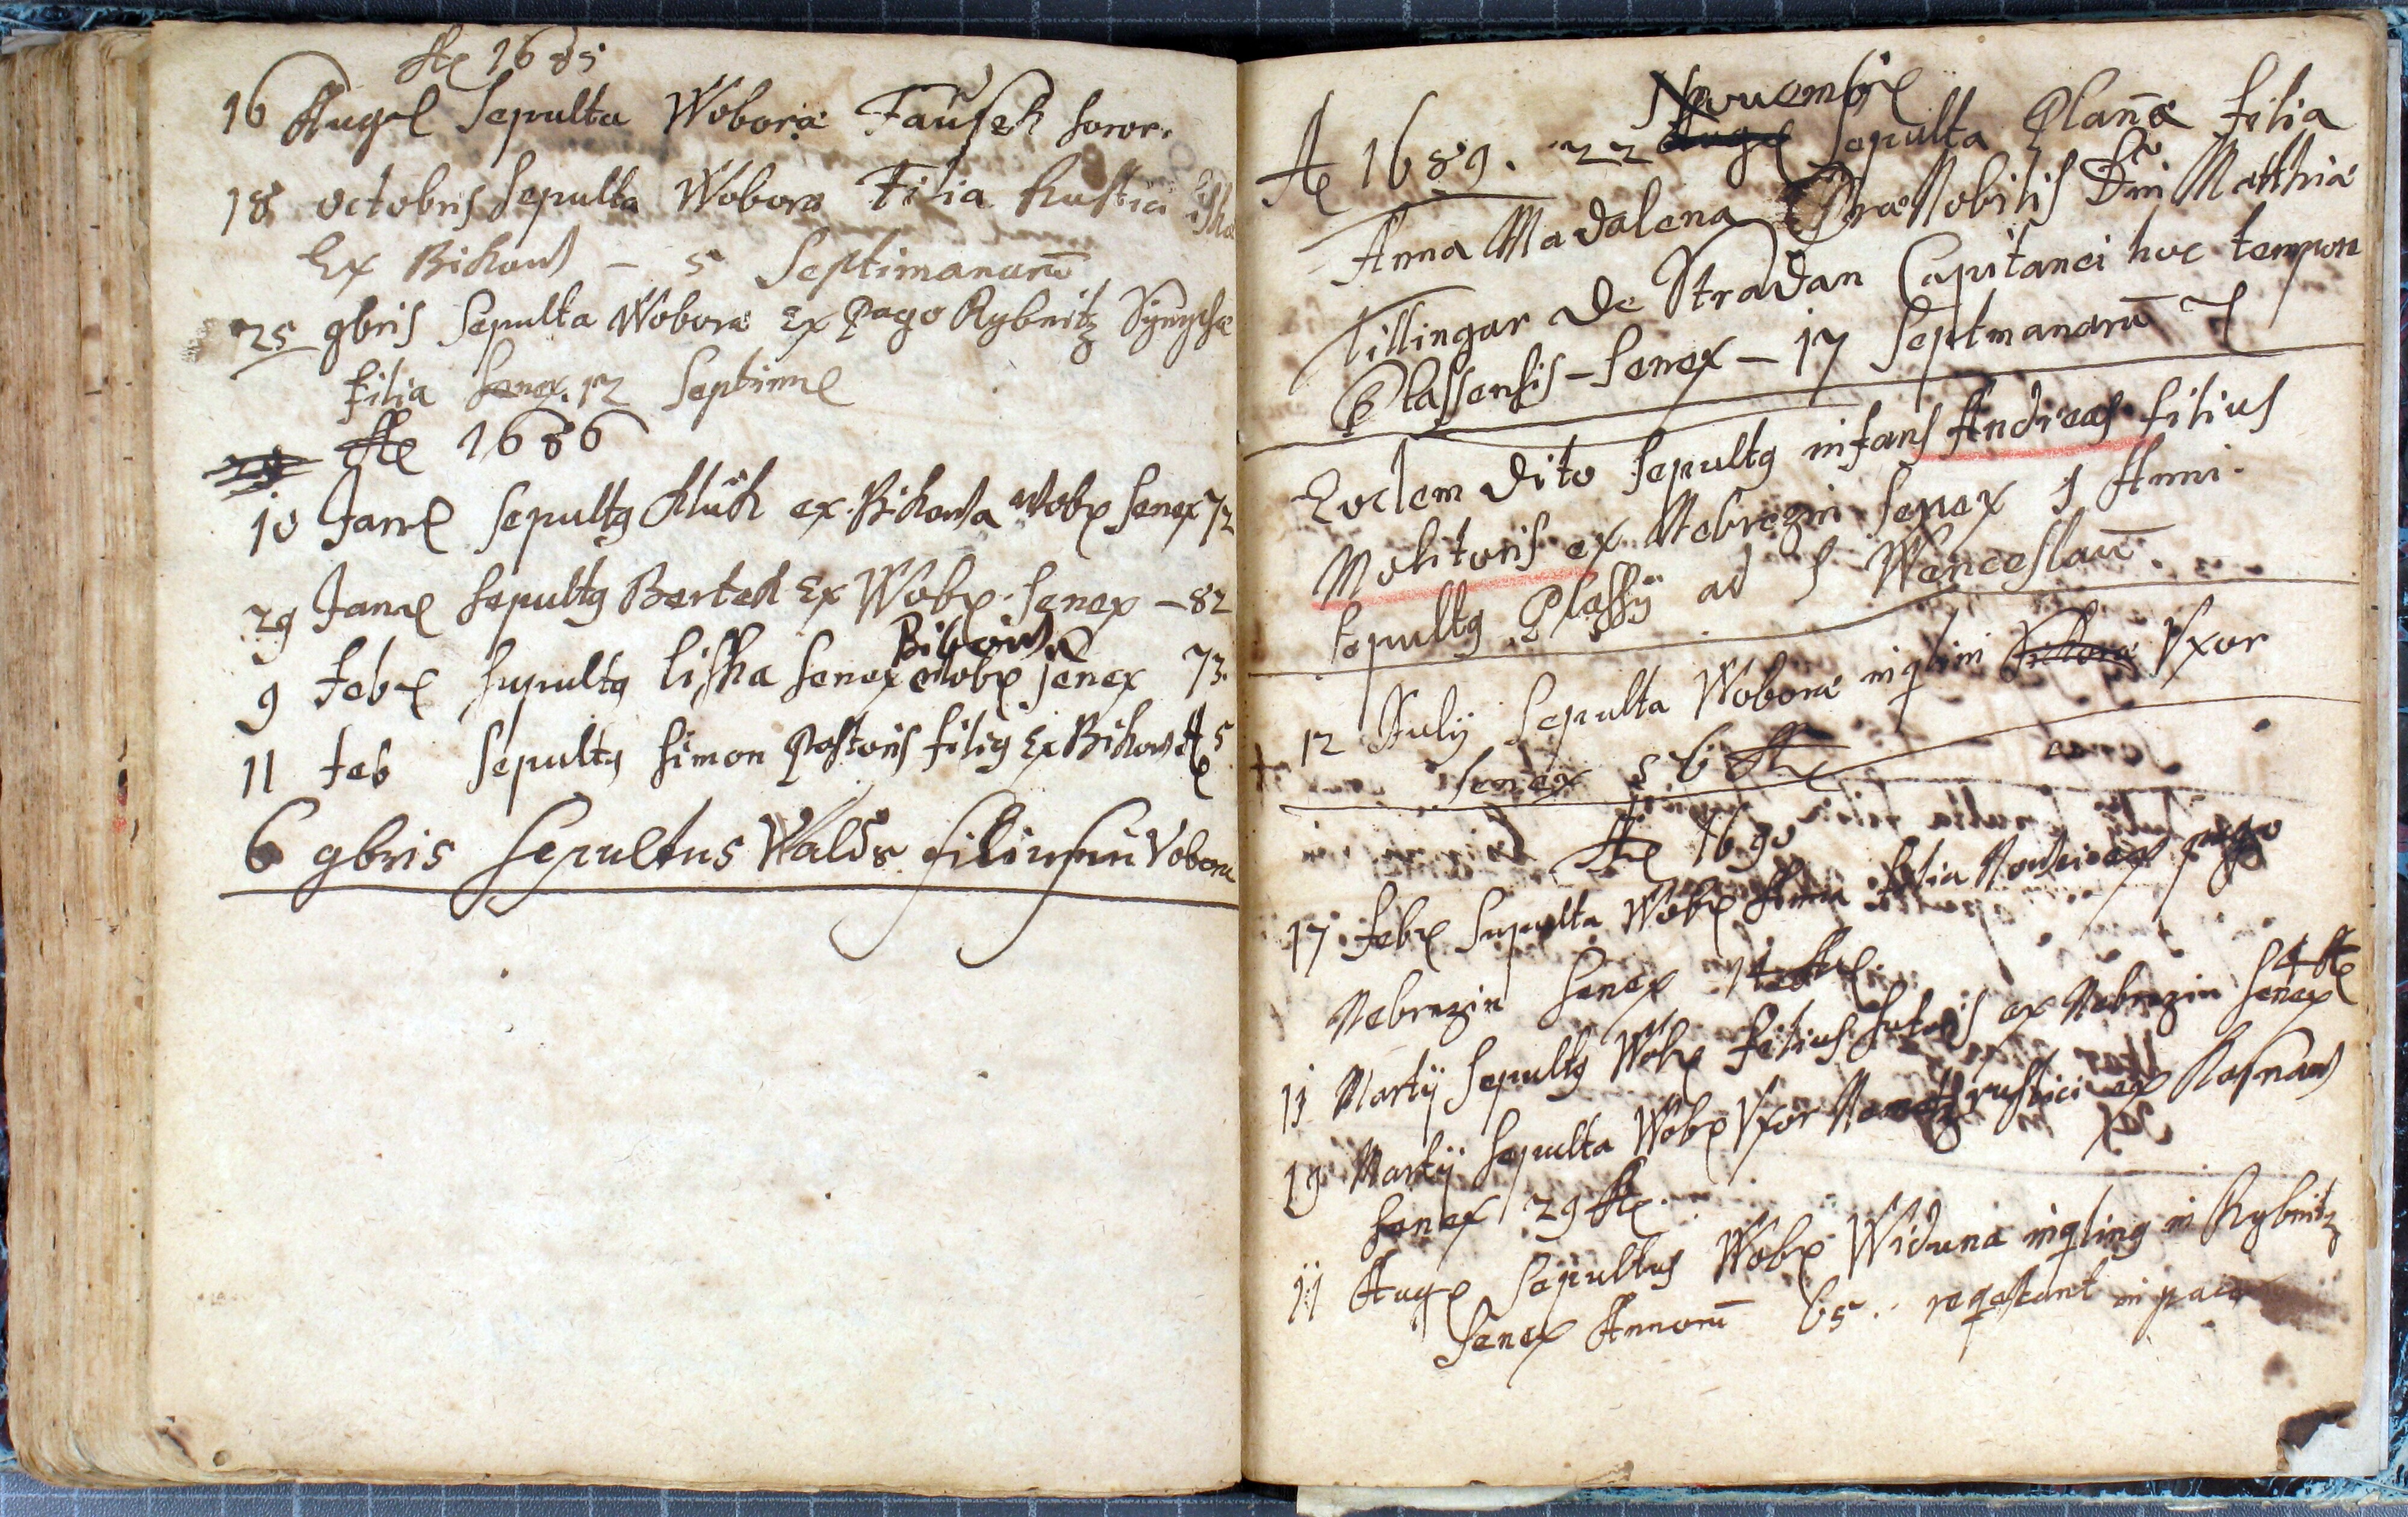 Ao 1685
16 Augl Sepulta Woborae Fausek soror.
18 octobris Sepulta Woborae Filia Rustici
Ex Bikow – 5 Septimanarū
25 9bris Sepulta Woborae Ex Pago Rybnitz
filia senex. 12 Septim
Ao 1686
10 Jan Sepultg Kluk ex Bikowa Wobr senex 72
29 Jan Sepultg Bartek Ex Wobr senex – 82
Bikowa
9 Febr Sepultg lisska senex Wobr senex 73.
11 Feb Sepultg Simon Pastoris filig Ex Bikow A 5
6 9bris Sepultus Walds filius in Voborae
Nouembr
Ao 1689. 22 Aug Sepulta Plannae filia
Anna Madalena PraeNobilis Dni Matthiae
Tillingar de Stradan Capitanei hoc tempore
Plassensis – senex – 17 Septmanarū
Eodem dito Sepultg infans Andreas filius
Molitoris ex Nebrezin senex 1 Anni.
Sepultg Plassy ad S Wenceslaū.
12 July Sepulta Woborae inqlini Uxor
senex 56 A
Ao 1690
17 Febr Sepulta Wobr Anna filia ex pago
Nebrezin senex
4 A
11 Martij Sepultg Wobr filius Sutoris ex Nebrezin senex
19 Martij Sepulta Wobr Vxor rustici ex Kasnaw
senex 29 A
11 Aug Sepultus Wobr Widuna inqling in Rybnitz
senex Annorū 65. reqescant in pace